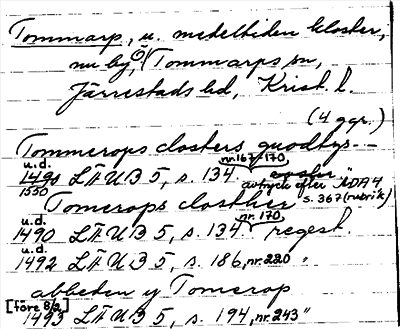 Tommarp, u. medeltiden kloster,
nu by, Ö Tommarps sn,
Järrestads hd, Krist. l.
(4 ggr.)
Tommerops closters goodtzs --
u.d. nr. 167, 170,
1490 LÄUB 5, s. 134. avtryck efter ÄDA 4
1550 s. 367 (rubrik)
Tomerops closther
u.d. nr. 170,
1490 LÄUB 5, s. 134. regest.
u.d.
1492 LÄUB 5, s. 186, nr. 220 "
abbeden y Tomerop
[före 8/2]
1493 LÄUB 5, s. 194, nr. 243 "